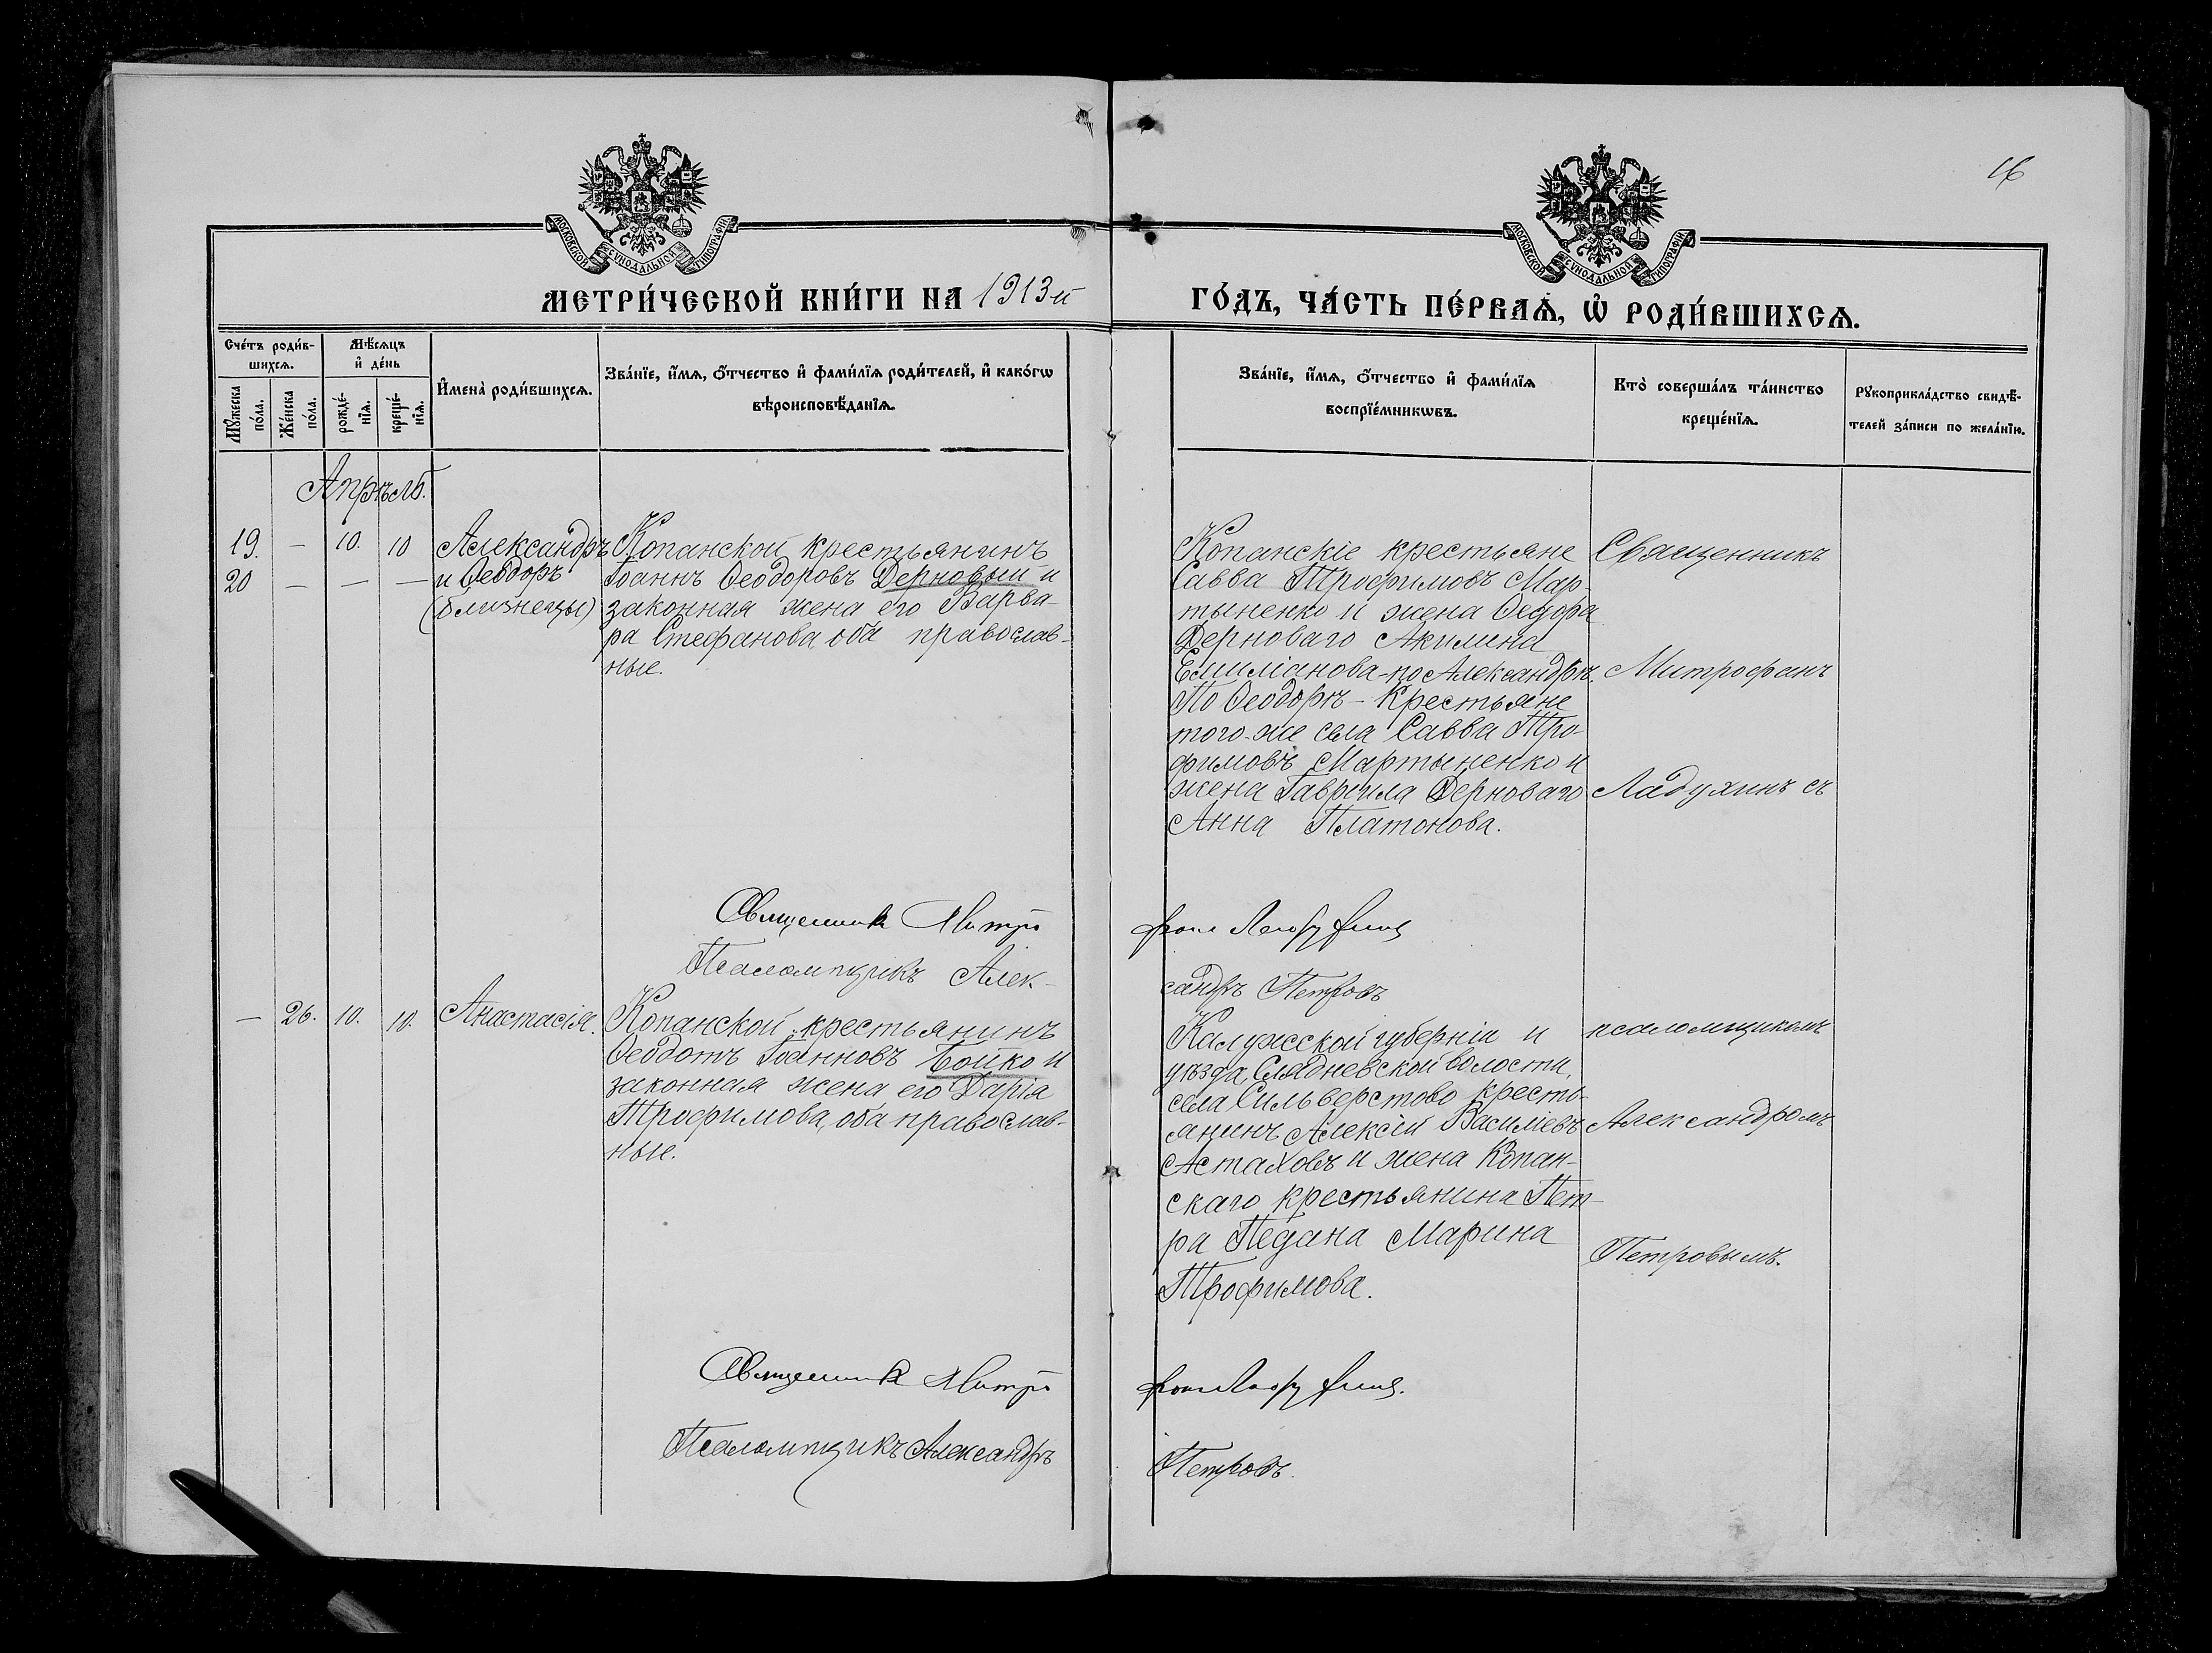 16
МОСКОВСКОЙ СѴНОДАЛЬНОЙ ТИПОГРАФІИ
МОСКОВСКОЙ СѴНОДАЛЬНОЙ ТИПОГРАФІИ
МЕТРИ́ЧЕСКОЙ КНИ́ГИ НА 1913-й
ГО́ДЪ, ЧА́СТЬ ПЕ́РВАѦ, Ѽ РОДИ́ВШИХСѦ.
Сче́тъ роди́в-
шихсѧ.
Мꙋжеска по́ла.
Же́нска по́ла.
Мѣ́сѧцъ
и҆ де́нь
рожде́-
нїѧ.
креще́-
нїѧ.
И҆мена̀ роди́вшихсѧ.
Зва́нїе, и҆́мѧ, ѻ҆́тчество и҆ фами́лїѧ роди́телей, и҆ како́гѡ
вѣроисповѣ́данїѧ.
Зва́нїе, и҆́мѧ, ѻ҆́тчество и҆ фами́лїѧ
воспрїе́мникѡвъ.
Кто̀ соверша́лъ та́инство
креще́нїѧ.
Рꙋкоприкла́дство свидѣ́-
телей за́писи по жела́нїю.
Апрѣль.
19. — 10. 10
20 — — —
Александръ
и Ѳеодоръ
(близнецы)
Копанской крестьянинъ
Іоаннъ Ѳеодоровъ Дерновый и
законная жена его Варва-
ра Стефанова, оба православ-
ные.
Копанскіе крестьяне
Савва Трофимовъ Мар-
тыненко и жена Ѳедора
Дерноваго Акилина
Емиліанова-по Александрѣ.
По Ѳеодорѣ - Крестьяне
того-же села Савва Тро-
фимовъ Мартыненко и
жена Гавріила Дерноваго
Анна Платонова.
Священникъ
Митрофанъ
Ладухинъ съ
Священникъ Митро
фанъ Ладухинъ
Псаломщикъ Алек-
сандръ Петровъ
— 26. 10. 10.
Анастасія.
Копанской крестьянинъ
Ѳеодотъ Іоанновъ Бойко и
законная жена его Дарія
Трофимова, оба православ-
ные.
Калужской губерніи и
уѣзда, Слядневской волости,
села Сильверстово кресть-
янинъ Алексій Василіевъ
Астаховъ и жена Копан-
скаго крестьянина Пет-
ра Педана Марина
Трофимова.
псаломщикомъ
Александромъ
Петровымъ.
Священникъ Митро
фанъ Ладухинъ.
Псаломщикъ Александръ
Петровъ.